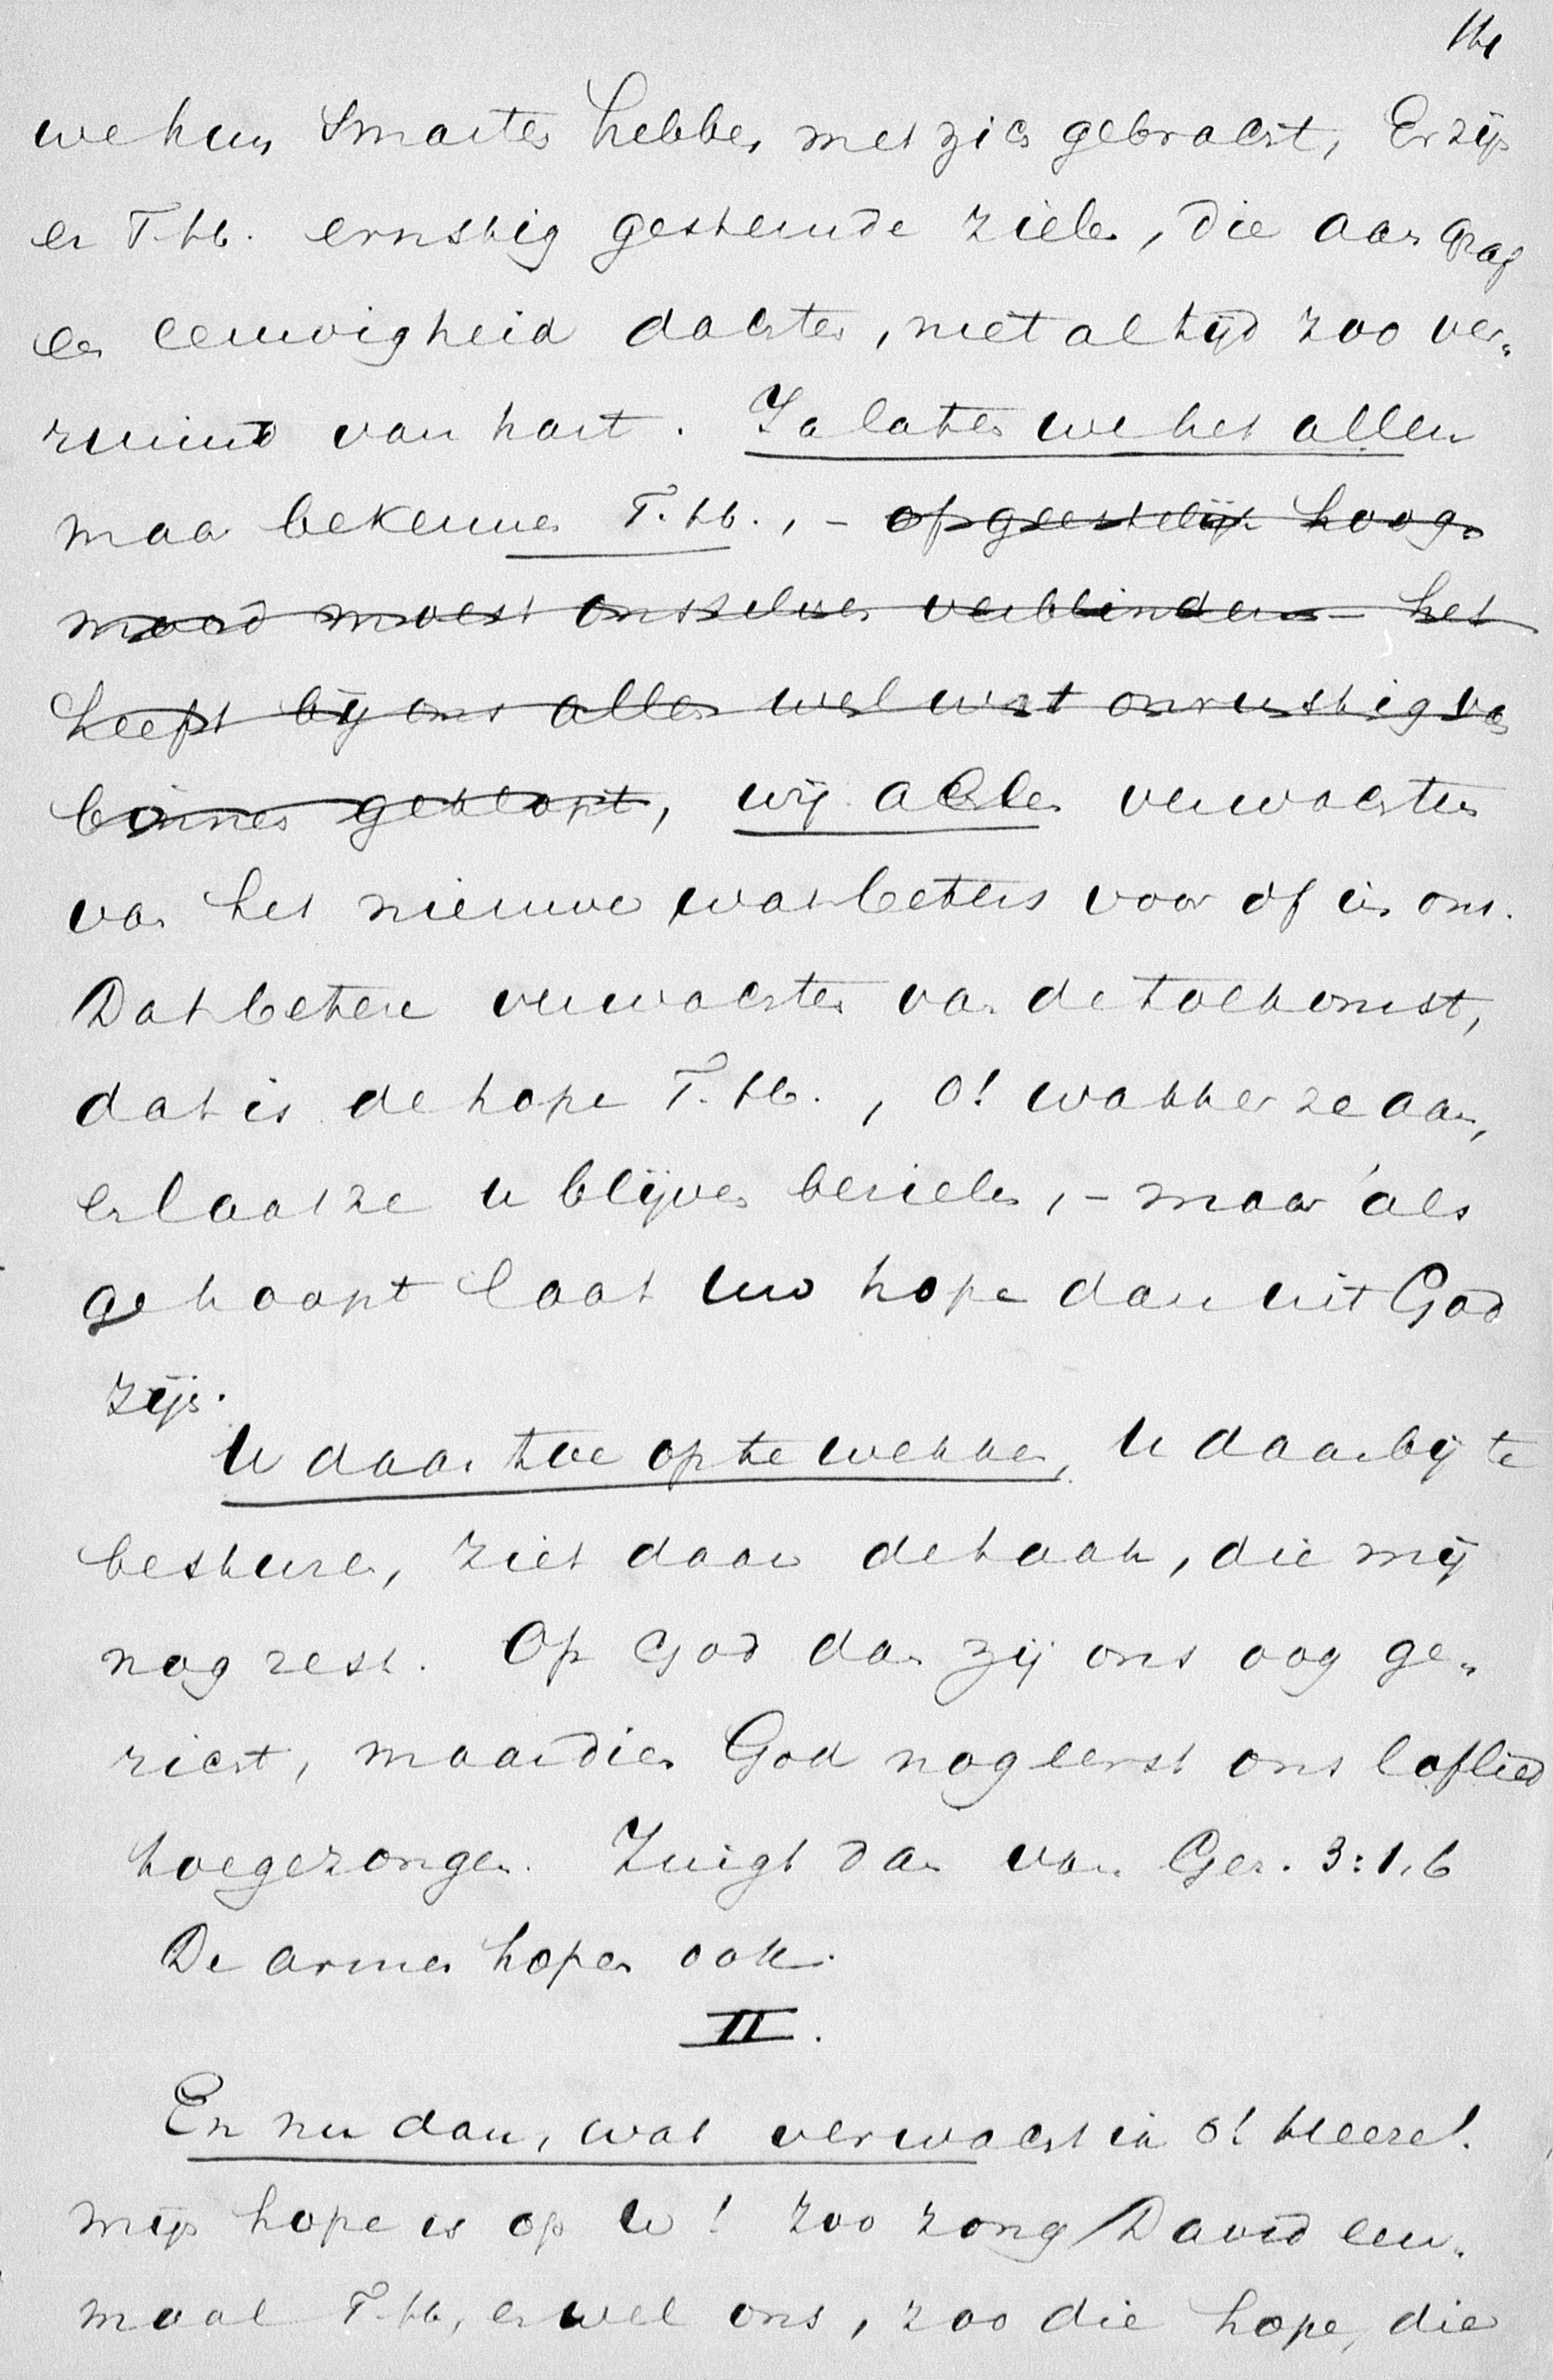 we hun smarten hebben met zich gebracht, Er zijn
er T.H. ernstig gestemde zielen, die aan graf
en eeuwigheid dachten, niet altijd zoo ver„
ruimd van hart. Ja laten we het allen
maar bekennen T.H., – of geestelijk hoog„
moed moest onszelven verblinden – het
heeft bij ons allen wel wat onrustig van
binnen geklopt, wij allen verwachten
van het nieuwe wat beters voor of in ons.
Dat betere verwachten van de toekomst,
dat is de hope T.H., o! wakker ze aan,
en laat ze u blijven bezielen, – maar als
ge hoopt laat uw hope dan uit God
zijn.
U daartoe op te wekken, U daarbij te
besturen, ziet daar de taak, die mij
nog rest. Op God dan zij ons oog ge„
richt, maar dien God nog eerst ons loflied
toegezongen. Zingt dan van Gez. 3:1,6
De armen hopen ook.
II.
En nu dan, wat verwacht ik o! Heere!
mijn hope is op U! zoo zong David een„
maal T.H., en wel ons, zoo die hope, die